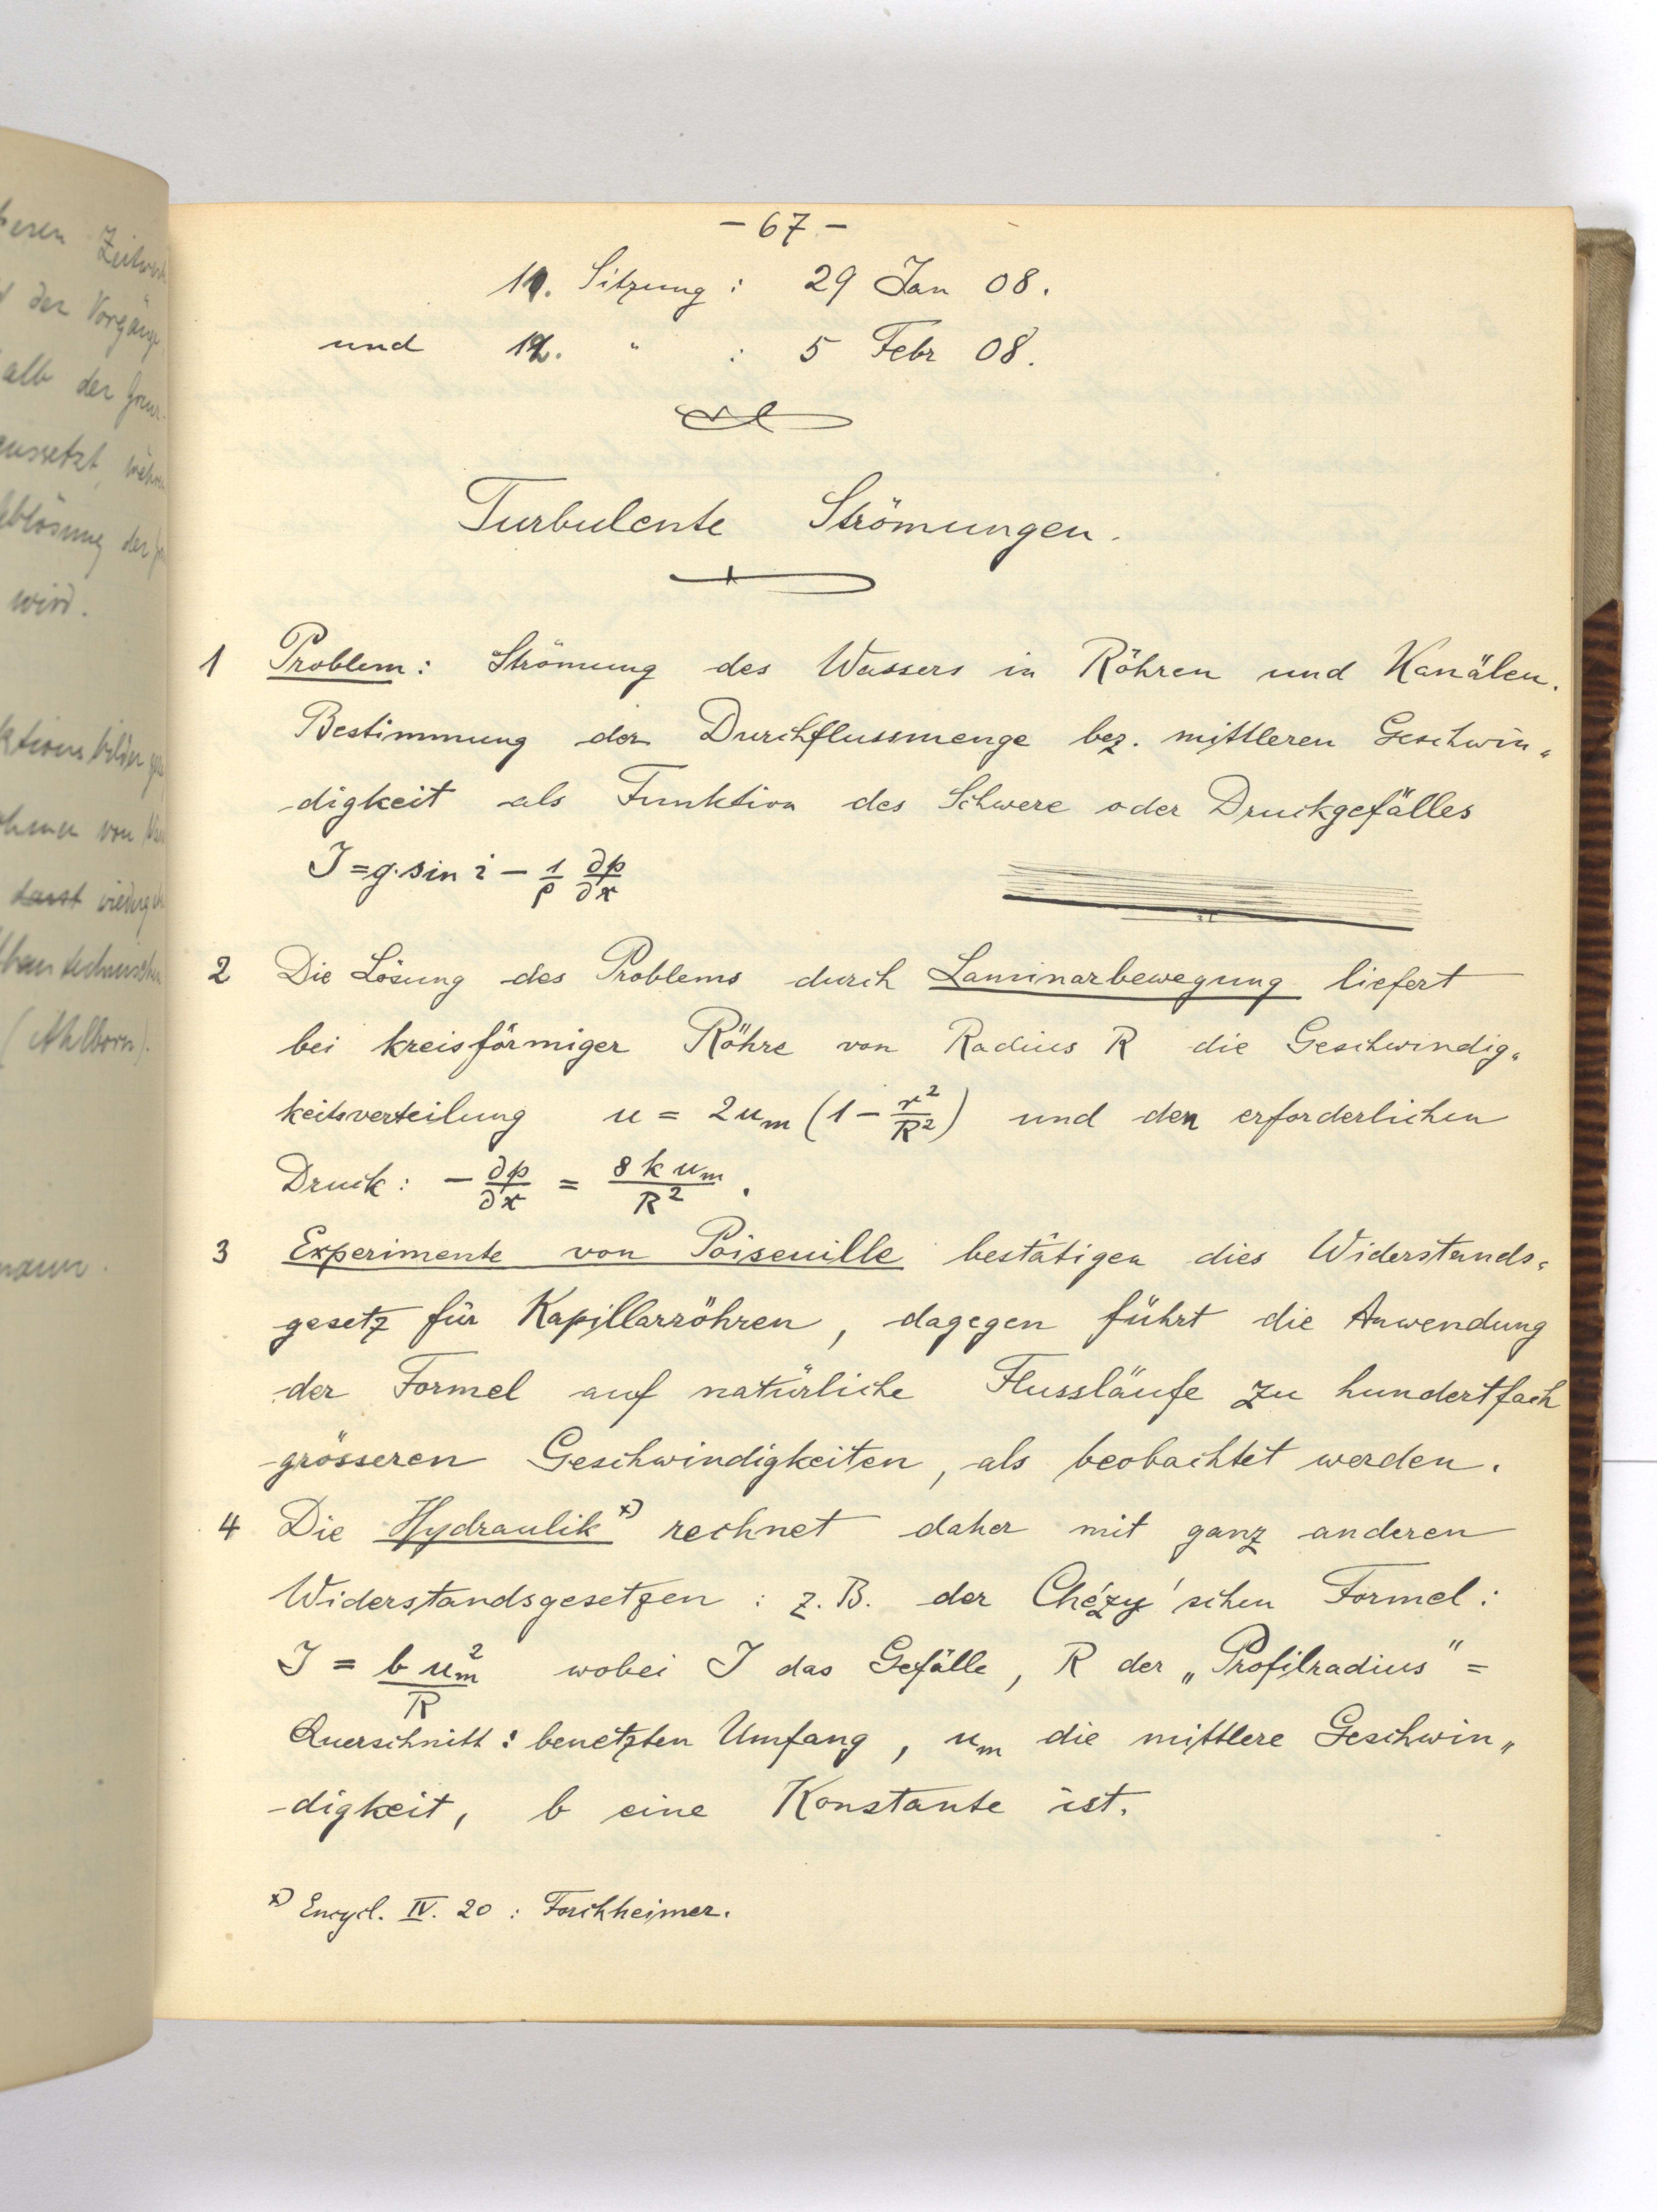 eren Zeitwert
der Vorgänge
alb der Grenz-
aussetzt, währen
Ablösung der
wird.
ktionsbilder
von
darst wiederge
(Ahlborn).
mann.
- 67 -
11. Sitzung : 29 Jan 08.
und 12. " : 5 Febr 08.
Turbulente Strömungen.
1 Problem: Strömung des Wassers in Röhren und Kanälen.
Bestimmung der Durchflussmenge bez. mittleren Geschwin-
digkeit als Funktion des Schwere oder Druckgefälles
J = g. sin i − 1/ρ ∂p/∂x
2 Die Lösung des Problems durch Laminarbewegung liefert
bei kreisförmiger Röhre von Radius R die Geschwindig-
keitsverteilung u = 2u_m (1 − r²/R²) und den erforderlichen
Druck: − ∂p/∂x = 8 k u_m / R² .
3 Experimente von Poiseuille bestätigen dies Widerstands-
gesetz für Kapillarröhren, dagegen führt die Anwendung
der Formel auf natürliche Flussläufe zu hundertfach
grösseren Geschwindigkeiten, als beobachtet werden.
4 Die Hydraulik x) rechnet daher mit ganz anderen
Widerstandsgesetzen : z. B. der Chézy'schen Formel:
J = b u_m² / R wobei J das Gefälle, R der „Profilradius" =
Querschnitt : benetzten Umfang, u_m die mittlere Geschwin„
digkeit, b eine Konstante ist.
x) Encycl. IV. 20 : Forchheimer.